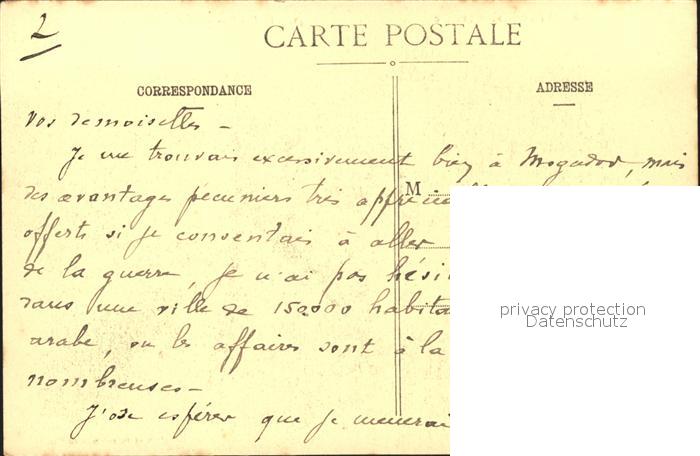 2
CARTE POSTALE
CORRESPONDANCE
ADRESSE
vos demoiselles –
Je me trouvais excessivement bien à Mogador, mais
M
des avantages pecuniers très appréciab
offerts si je consentais à aller
de la guerre, je n'ai pas hési
dans une ville de 150.000 habita
arabe, ou les affaires sont à la
nombreuses –
J'ose espérer que je menerai
privacy protection
Datenschutz